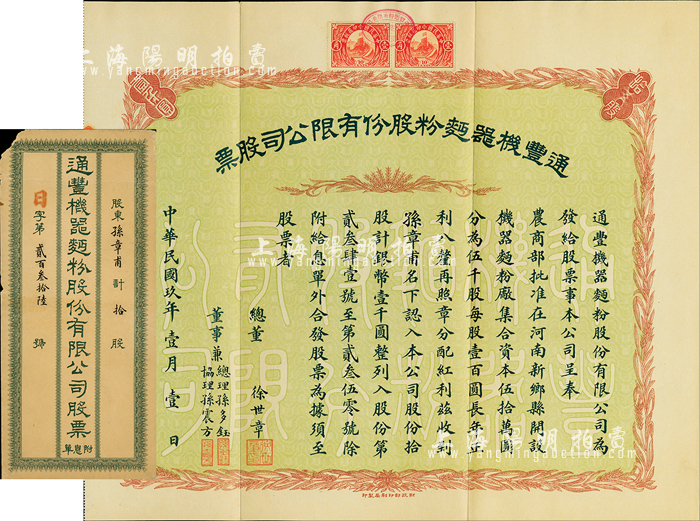 上海陽明拍賣
www.yangmingauction.com
通豐機器麵粉股份有限公司股票
通豐機器麵粉股份有限公司為
發給股票事本公司呈奉
農商部批准在河南新鄉縣開設
機器麵粉廠集合資本伍拾萬圓
分為伍千股每股壹百圓長年正
利八釐再照章分配紅利茲收到
孫章甫名下認入本公司股份拾
股計銀幣壹千圓整列入股份第
貳叁肆壹號至第貳叁伍零號除
附給息單外合發股票為據須至
股票者
總董 徐世章
董事兼總理孫多鈺
協理孫震方
中華民國玖年壹月壹日
財政部印刷局製印
股東孫章甫計拾股
通豐機器麵粉股份有限公司股票附息單
日字第貳百叁拾陸號
上海陽明拍賣
www.yangmingauction.com
上海陽明拍賣
www.yangmingauction.com